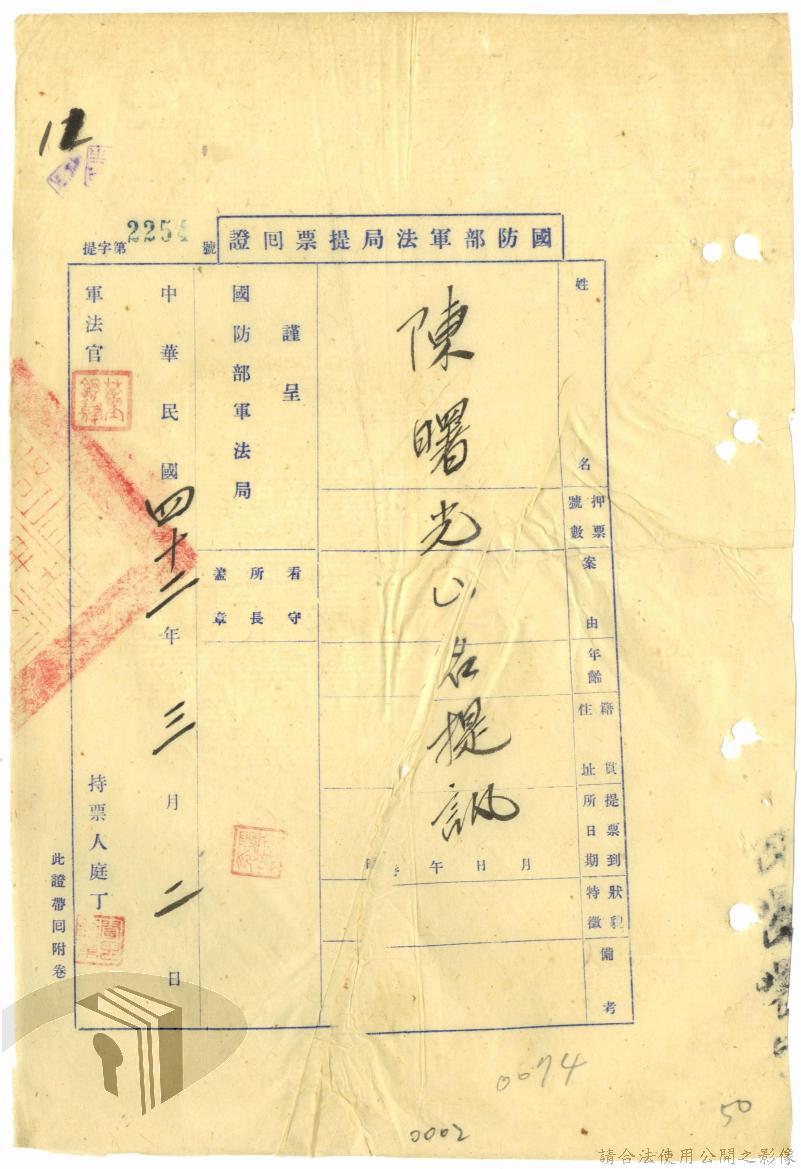 12
國防部軍法局提票回證
提字第2254號
姓名
押票號數
案由
年齡
籍貫住址
提票到所日期
狀貌特徵
備考
陳曙光 名提訊
月日午時
謹呈
國防部軍法局
看守所長蓋章
中華民國四十二年三月二日
軍法官
持票人庭丁
此證帶回附卷
0074
0002
50
請合法使用公開之影像